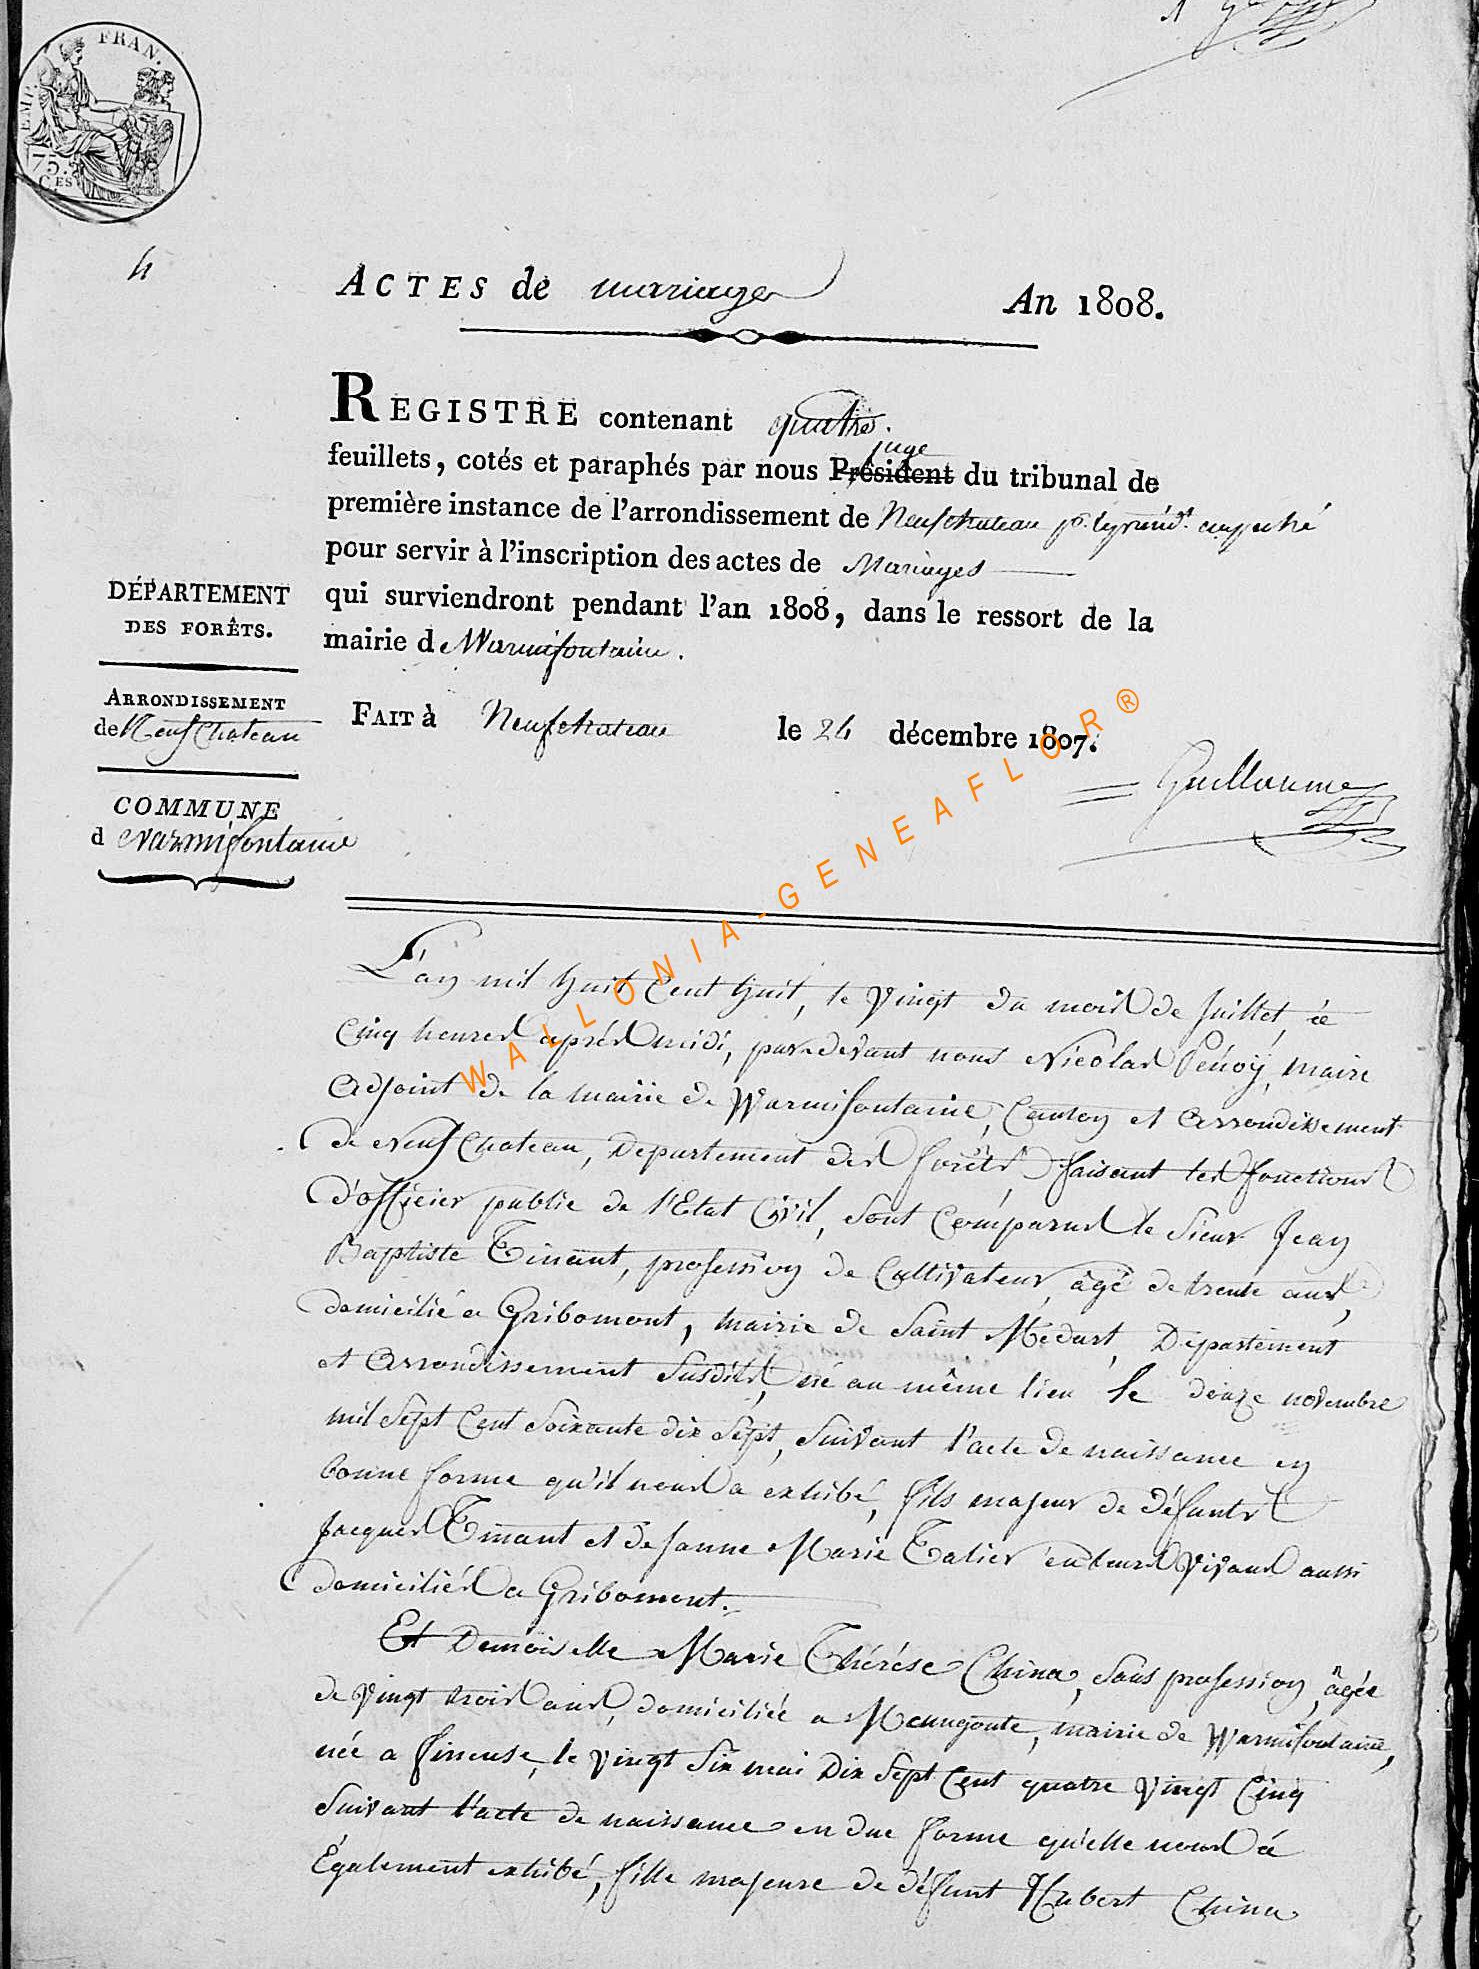 EMP. FRAN.
75. CES
4
ACTES de mariage An 1808.
REGISTRE contenant quatre.
feuillets, cotés et paraphés par nous Président juge du tribunal de
première instance de l'arrondissement de Neufchateau
pour servir à l'inscription des actes de Mariages
qui surviendront pendant l'an 1808, dans le ressort de la
mairie de Warmifontaine.
DÉPARTEMENT
DES FORÊTS.
ARRONDISSEMENT
de Neufchateau
COMMUNE
d Warmifontaine
FAIT à Neufchateau le 24 décembre 1807.
Guillaume
WALLONIA-GENEAFLOR®
L'an mil huit Cent huit, le Vingt du mois de Juillet, à
Cinq heures après midi, pardevant nous Nicolas Penoÿ, maire
adjoint de la mairie de Warmifontaine, Canton et arrondissement
de Neufchateau, Departement des forêts, faisant les fonctions
d'officier public de l'Etat Civil, sont Comparus le Sieur Jean
Baptiste Tinant, profession de Cultivateur, âgé de trente ans,
domicilié a Gribomont, mairie de Saint Médart, Département
et arrondissement susdits, né au même lieu le douze novembre
mil Sept Cent Soixante dix Sept, Suivant l'acte de naissance en
bonne forme qu'il nous a exhibé, fils majeur de défunts
Jacques Tinant et de Janne Marie Talier en leurs Vivans aussi
domiciliés a Gribomont.
Et Demoiselle Marie Thérése China, sans profession, âgée
de Vingt trois ans, domiciliée a Menugoute, mairie de Warmifontaine,
née a fineuse, le Vingt Six mai Dix Sept Cent quatre Vingt Cinq
Suivant l'acte de naissance en due forme qu'elle nous à
Également exhibé, fille majeure de défunt Hubert China